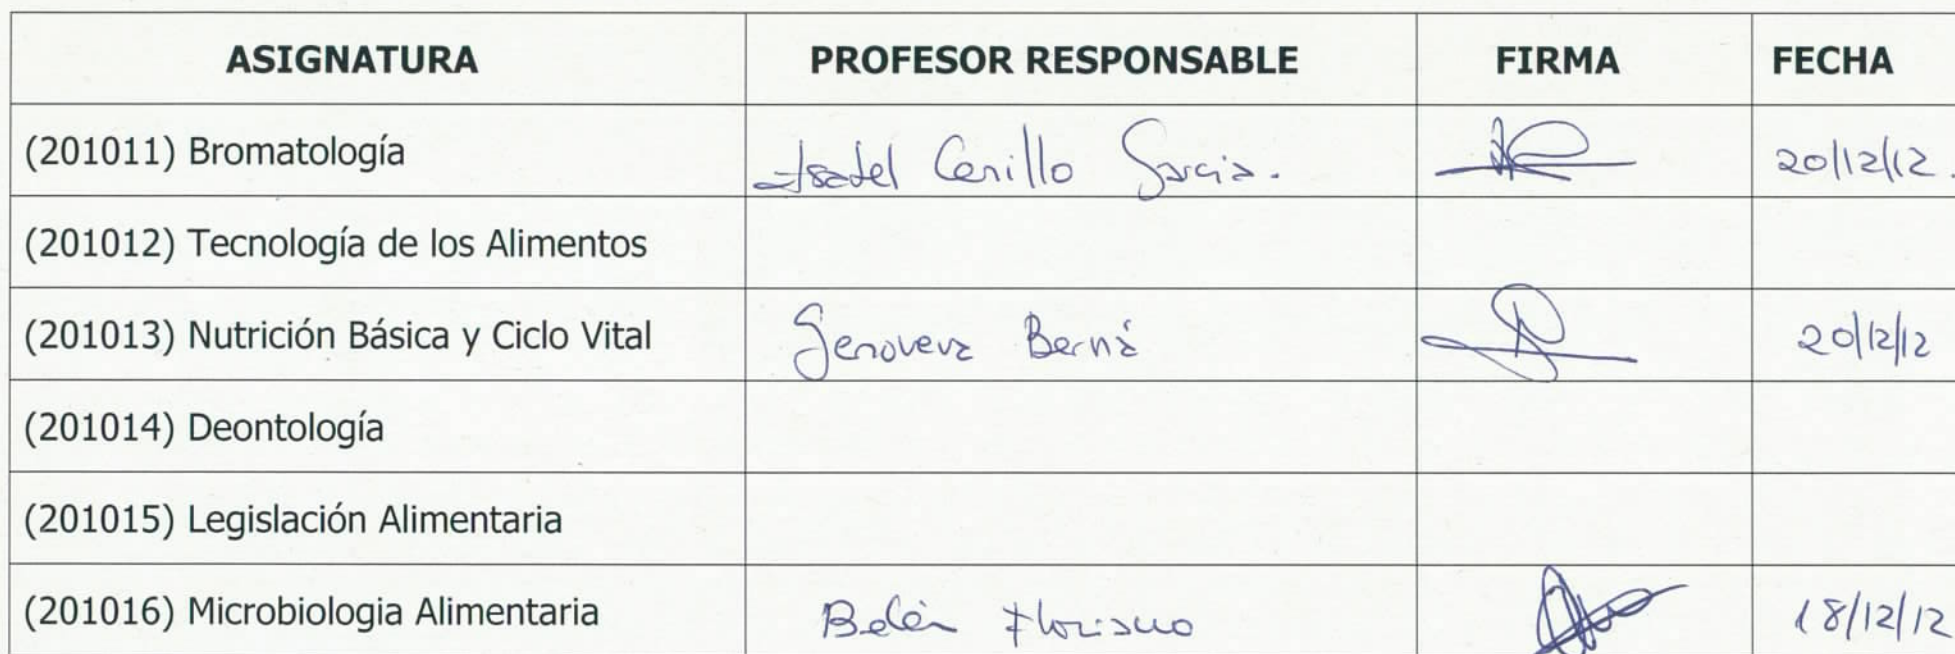 ASIGNATURA PROFESOR RESPONSABLE FIRMA FECHA
(201011) Bromatología Isabel Cerillo Garcia. 20/12/12.
(201012) Tecnología de los Alimentos
(201013) Nutrición Básica y Ciclo Vital Genoveva Berná 20/12/12
(201014) Deontología
(201015) Legislación Alimentaria
(201016) Microbiologia Alimentaria Belén Floriano 18/12/12